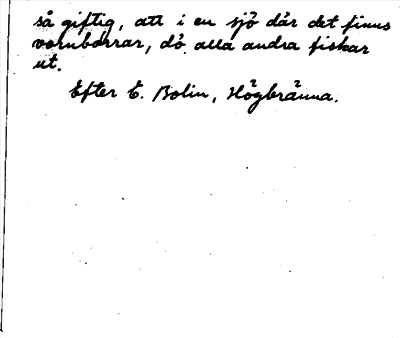 så giftig, att i en sjö där det finns
vornborrar, dö alla andra fiskar
ut.
Efter E. Bolin, Högbränna.